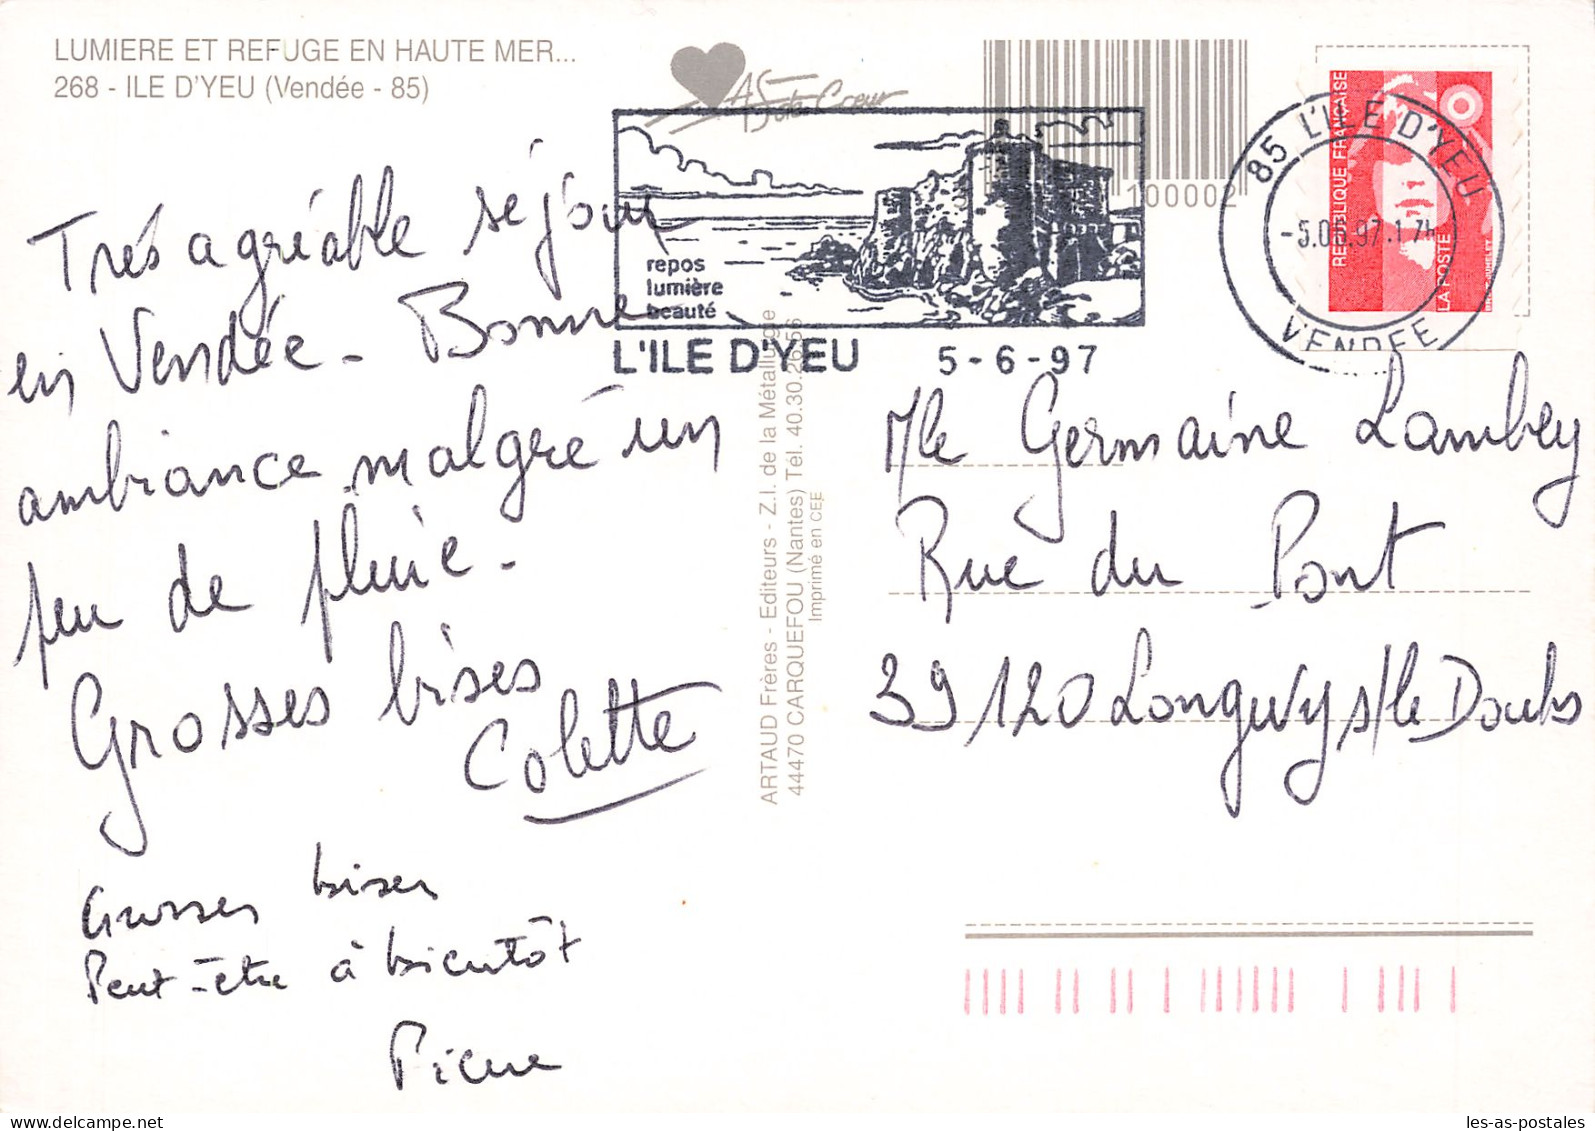 LUMIERE ET REFUGE EN HAUTE MER...
268 - ILE D'YEU (Vendée - 85)
Très agréable séjour
en Vendée - Bonne
ambiance malgré un
peu de pluie.
Grosses bises
Colette
Grosses bises
Peut-être à bientôt
Pierre
repos
lumière
beauté
L'ILE D'YEU 5-6-97
100002
85 L'ILE D'YEU
VENDEE
REPUBLIQUE FRANÇAISE
LA POSTE
ARTAUD Frères - Editeurs - Z.I. de la Métallurgie
44470 CARQUEFOU (Nantes) Tél. 40.30.26.56
Imprimé en CEE
Mle Germaine Lambey
Rue du Pont
39120 Longwy s/le Doubs
les-as-postales